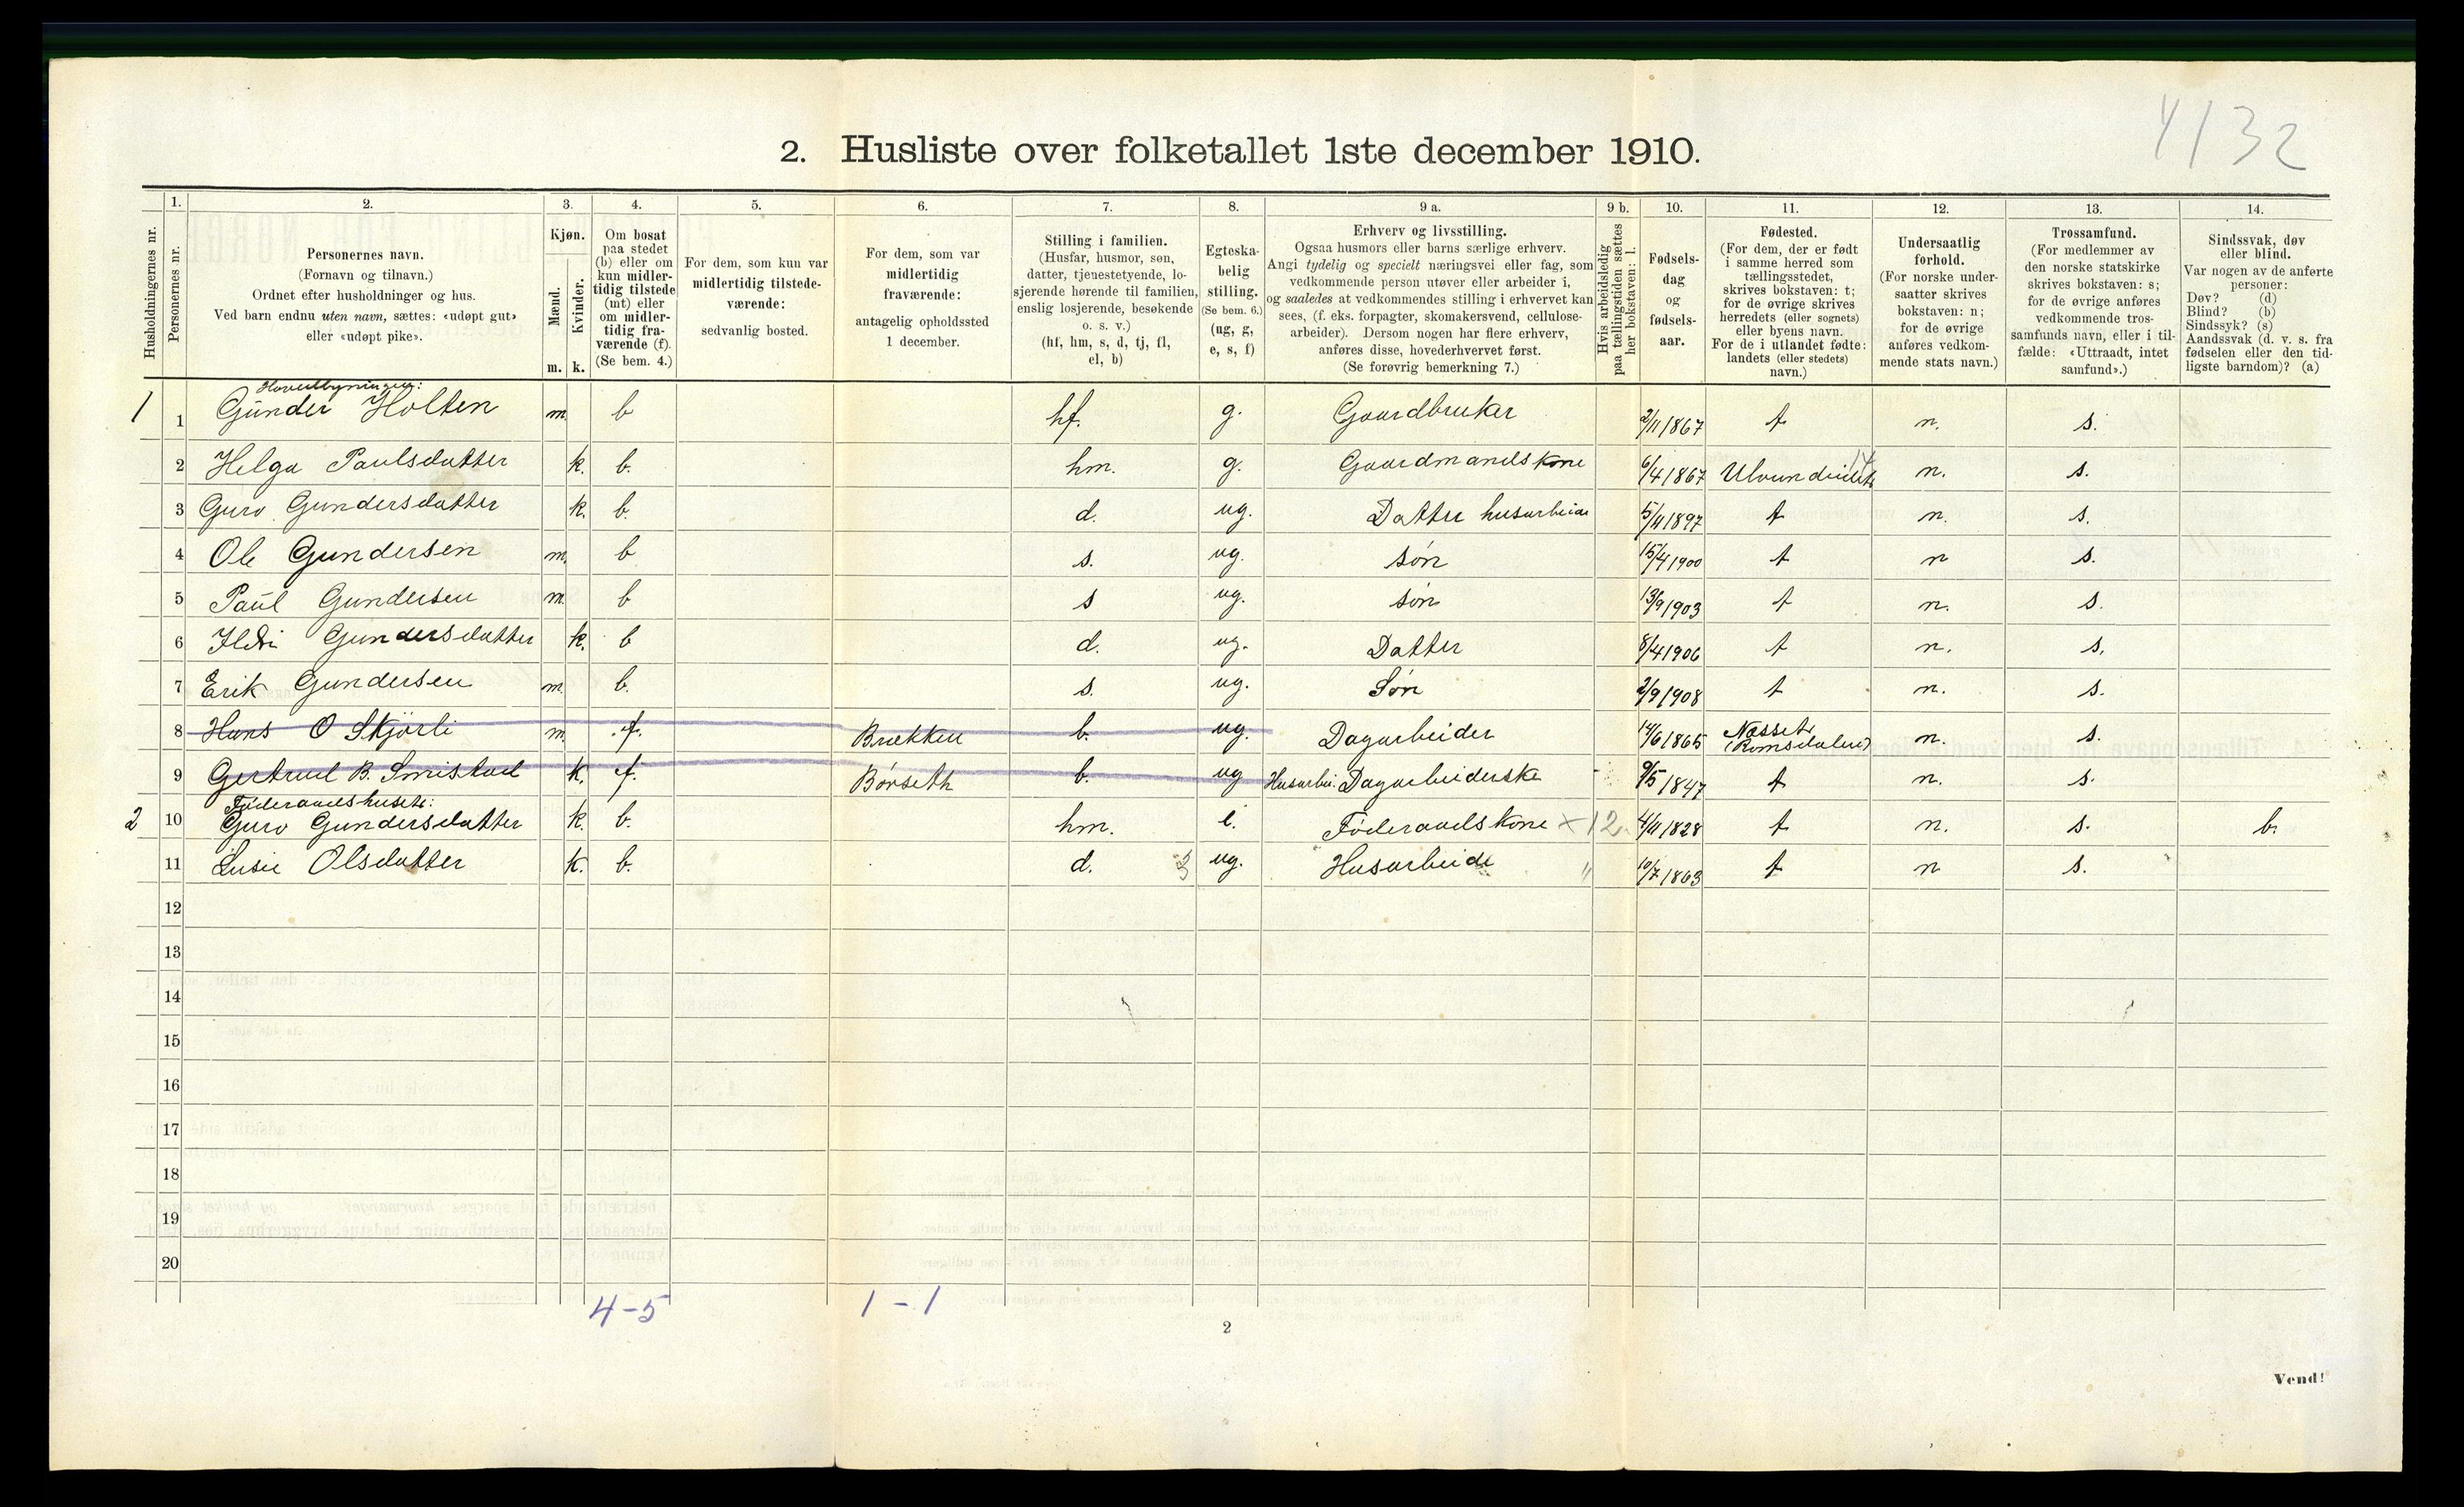 4/32
2. Husliste over folketallet 1ste december 1910.
Husholdningernes nr.
1. Personernes nr.
2. Personernes navn.
(Fornavn og tilnavn.)
Ordnet efter husholdninger og hus.
Ved barn endnu uten navn, sættes: «udøpt gut»
eller «udøpt pike».
3. Kjøn.
Mænd. Kvinder.
m. k.
4. Om bosat
paa stedet
(b) eller om
kun midler-
tidig tilstede
(mt) eller
om midler-
tidig fra-
værende (f).
(Se bem. 4.)
5. For dem, som kun var
midlertidig tilstede-
værende:
sedvanlig bosted.
6. For dem, som var
midlertidig
fraværende:
antagelig opholdssted
1 december.
7. Stilling i familien.
(Husfar, husmor, søn,
datter, tjenestetyende, lo-
sjerende hørende til familien,
enslig losjerende, besøkende
o. s. v.)
(hf, hm, s, d, tj, fl,
el, b)
8. Egteska-
belig
stilling.
(Se bem. 6.)
(ug, g,
e, s, f)
9 a. Erhverv og livsstilling.
Ogsaa husmors eller barns særlige erhverv.
Angi tydelig og specielt næringsvei eller fag, som
vedkommende person utøver eller arbeider i,
og saaledes at vedkommendes stilling i erhvervet kan
sees, (f. eks. forpagter, skomakersvend, cellulose-
arbeider). Dersom nogen har flere erhverv,
anføres disse, hovederhvervet først.
(Se forøvrig bemerkning 7.)
9 b. Hvis arbeidsledig
paa tællingstiden sættes
her bokstaven: l.
10. Fødsels-
dag
og
fødsels-
aar.
11. Fødested.
(For dem, der er født
i samme herred som
tællingsstedet,
skrives bokstaven: t;
for de øvrige skrives
herredets (eller sognets)
eller byens navn.
For de i utlandet fødte:
landets (eller stedets)
navn.)
12. Undersaatlig
forhold.
(For norske under-
saatter skrives
bokstaven: n;
for de øvrige
anføres vedkom-
mende stats navn.)
13. Trossamfund.
(For medlemmer av
den norske statskirke
skrives bokstaven: s;
for de øvrige anføres
vedkommende tros-
samfunds navn, eller i til-
fælde: «Uttraadt, intet
samfund».)
14. Sindssvak, døv
eller blind.
Var nogen av de anførte
personer:
Døv? (d)
Blind? (b)
Sindssyk? (s)
Aandssvak (d. v. s. fra
fødselen eller den tid-
ligste barndom)? (a)
Hovedbygningen:
1 1 Gunder Holten m. b hf. g. Gaardbruker 2/11 1867 t n. s.
2 Helga Paulsdatter k. b. hm. g. Gaardmandskone 6/4 1867 14 n. s.
3 Guro Gundersdatter k. b. d. ug. Datter husarbeide 5/11 1897 t n. s.
4 Ole Gundersen m. b s. ug. søn 15/4 1900 t n s.
5 Paul Gundersen m. b s ug. søn 13/9 1903 t n. s.
6 Gundersdatter k. b d. ug. Datter 8/4 1906 t n. s.
7 Erik Gundersen m. b. s. ug. Søn 2/9 1908 t n. s.
8 Hans O Skjørli m. f. Brækken b. ug. Dagarbeider 14/6 1865 Næsset (Romsdalen) n. s.
9 Gertrud B. Smistad k. f. Børseth b. ug Husarbei. Dagarbeiderske 9/5 1847 t n. s.
Føderaadshuset:
2 10 Guro Gundersdatter k. b. hm. e. Føderaadskone × 12. 4/11 1828 t n. s. b.
11 Lusie Olsdatter k. b. d. 3 ug. Husarbeide " 10/7 1863 t n s.
12
13
14
15
16
17
18
19
20
4-5 1-1
2
Vend!